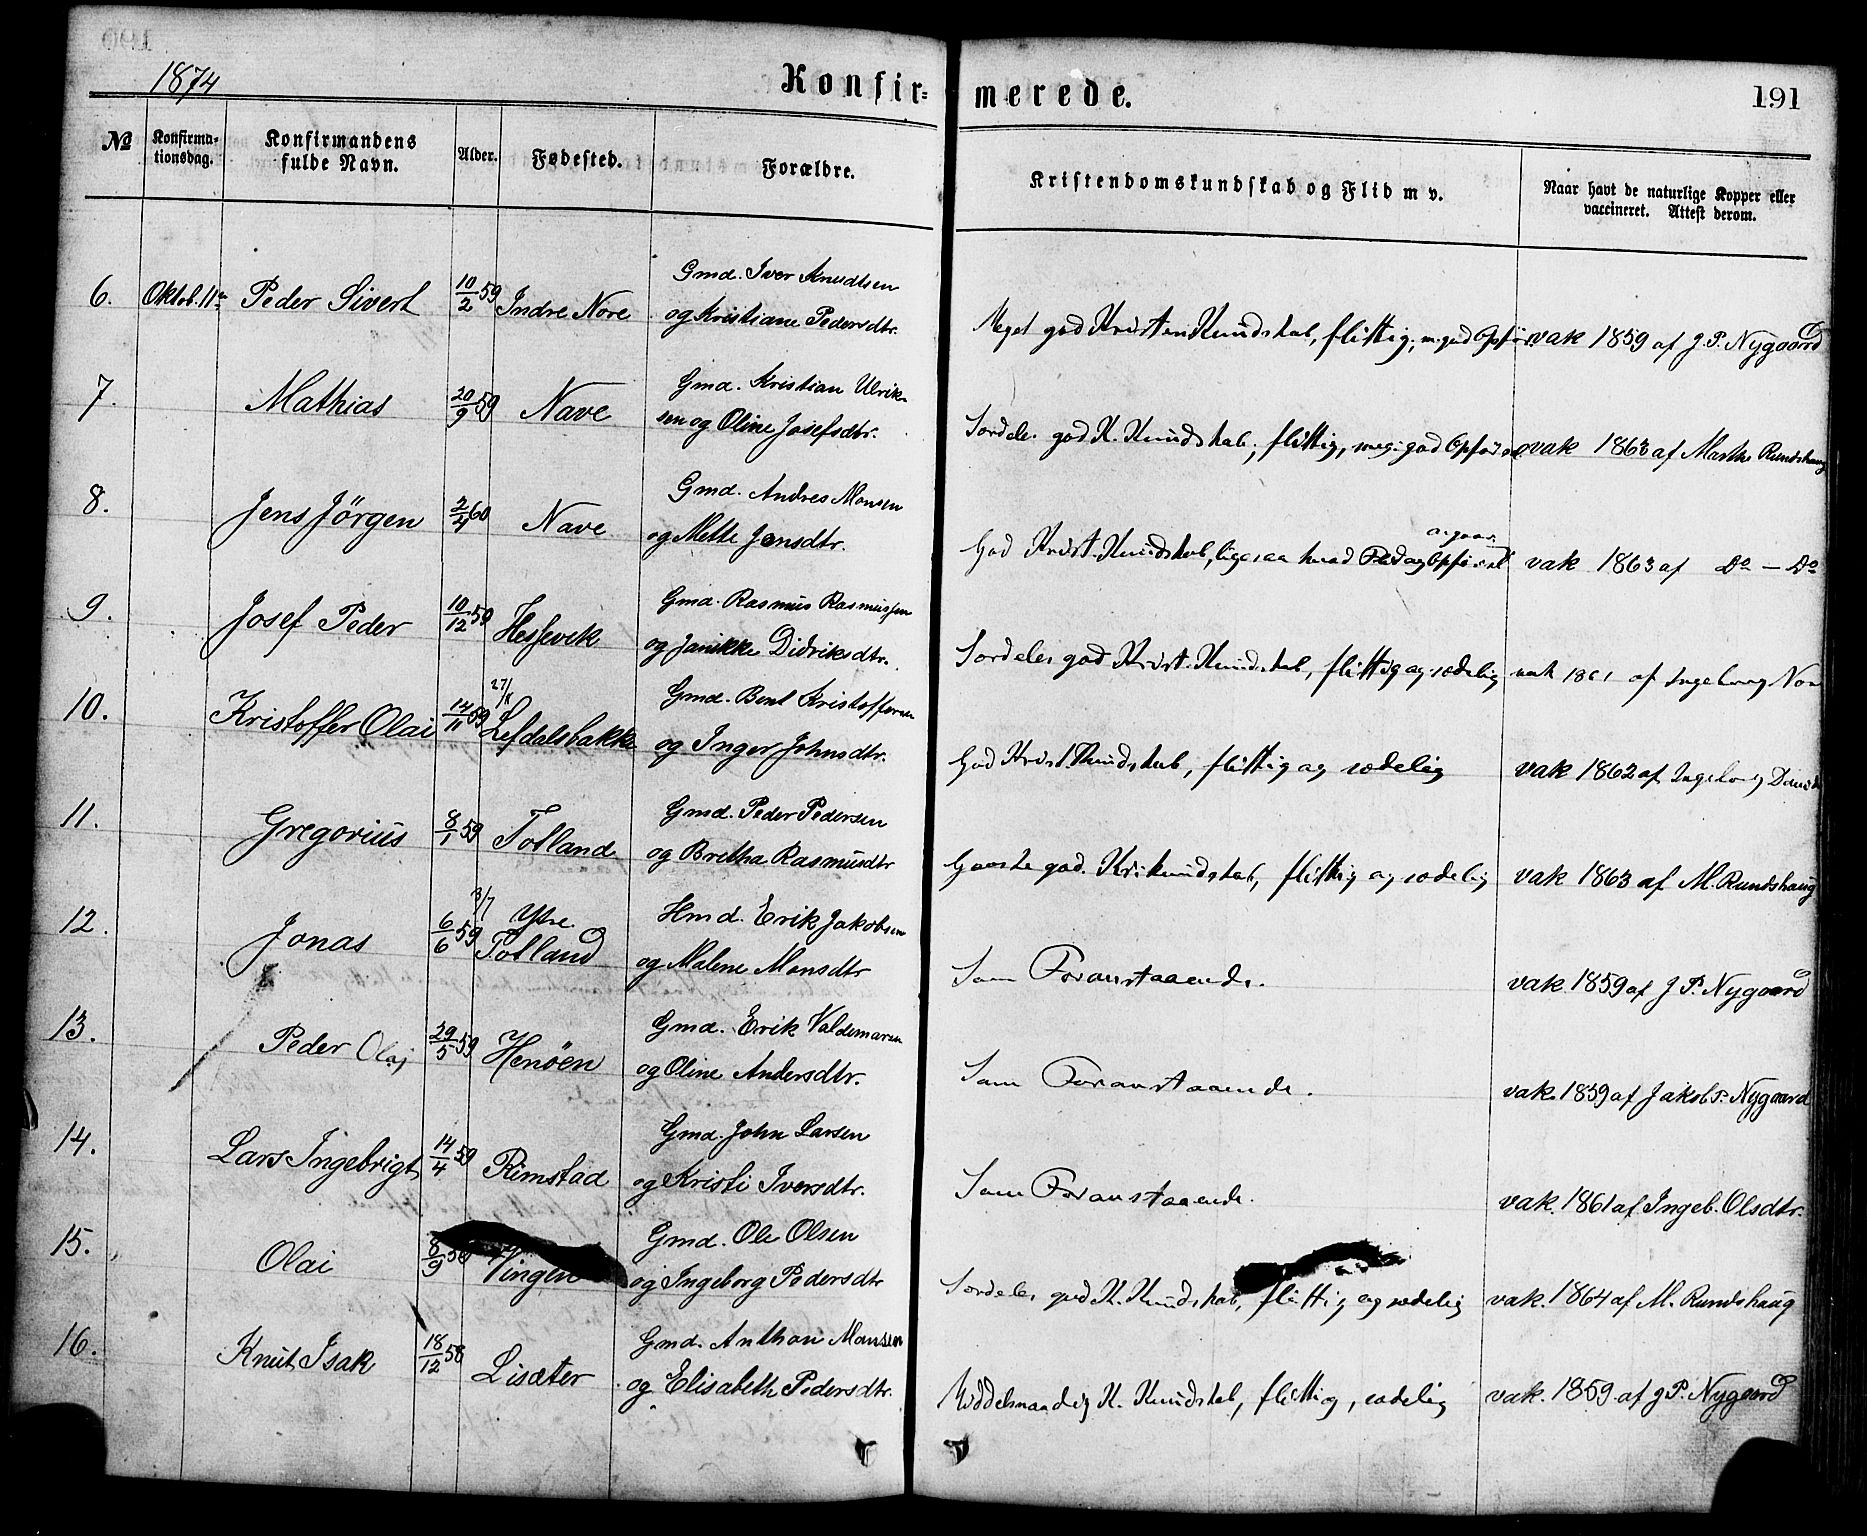 1874
Konfirmerede.
191
№ Konfirmationsdag. Konfirmandens fulde Navn. Alder. Fødested. Forældre. Kristendomskundskab og Flid m v. Naar havt de naturlige Kopper eller vaccineret. Attest derom.
6. Oktob. 11te Peder Sivert 10/2 59 Indre Nore Gmd. Iver Knudtsen
og Kristiane Pedersdtr. Meget god Kristen Kundskab, flittig, m. god Opfør. vak 1859 af J. P. Nygaard
7. Mathias 20/9 59 Nave Gmd. Kristian Ulrik-
sen og Oline Josefsdtr. Særdeles god K. Kundskab, flittig, meg. god Opførsel vak 1863 af Marthe Rundshaug
8. Jens Jörgen 2/4 60 Nave Gmd. Andres Monsen
og Mette Jensdtr. God Krist. Kundskab, ligesaa hvad Flid og Opførsel angaar. vak 1863 af Do – Do
9. Josef Peder 10/12 59 Hessevik Gmd. Rasmus Rasmussen
og Janikke Didriksdtr. Særdeles god Krist. Kundskab, flittig og sædelig vak 1861 af Ingeborg Nor
10. Kristoffer Olai 14/11 59 27/11 Lefdalsbakke Gmd. Bent Kristoffersen
og Inger Johnsdtr. God Krist. Kundskab, flittig og sædelig vak 1862 af Ingeborg
11. Gregorius 8/1 59 Totland Gmd. Peder Pedersen
og Bretha Rasmusdtr Ganske god Kr. kundskab, flittig og sædelig vak 1863 af M. Rundshaug
12. Jonas 6/6 59 3/7 Ytre Totland Hmd. Erik Jakobsen
og Malene Monsdtr Som Foranstaaende. vak. 1859 af J P. Nygaard
13. Peder Olaj 29/5 59 Henöen Gmd. Erik Valdemarsen
og Oline Andersdtr. Som Foranstaaende. vak. 1859 af Jakob P. Nygaard
14. Lars Ingebrigt 14/4 59 Rimstad Gmd. John Larsen
og Kristi Iversdtr. Som Foranstaaende. vak. 1861 af Ingeb. Olsdtr.
15. Olai 8/9 Vingen Gmd. Ole Olsen
og Ingeborg Pedersdtr Særdeles god K. Kundskab, flittig og sædelig vak. 1864 af M. Rundshaug
16. Knut Isak 18/12 58 Lisæter Gmd. Anthon Monsen
og Elisabeth Pedersdtr. Middelmaadig K. Kundskab, flittig, sædelig vak. 1859 af J P. Nygaard